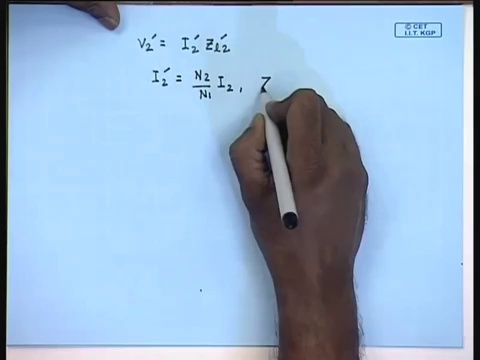 © CET
I.I.T. KGP
V₂′ = I₂′ Zℓ₂′
I₂′ = N₂/N₁ I₂, Z